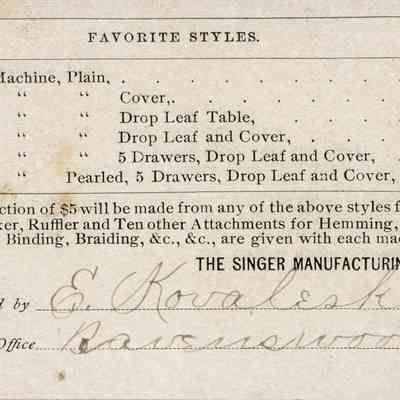 FAVORITE STYLES.
Machine, Plain, . . . . . . . . .
“ “ Cover, . . . . . . .
“ “ Drop Leaf Table, . . . .
“ “ Drop Leaf and Cover, . . . .
“ “ 5 Drawers, Drop Leaf and Cover, .
“ Pearled, 5 Drawers, Drop Leaf and Cover,
ction of $5 will be made from any of the above styles f
ker, Ruffler and Ten other Attachments for Hemming,
Binding, Braiding, &c., &c., are given with each ma
THE SINGER MANUFACTURIN
d by E. Kovalesk
Office Ravenswoo